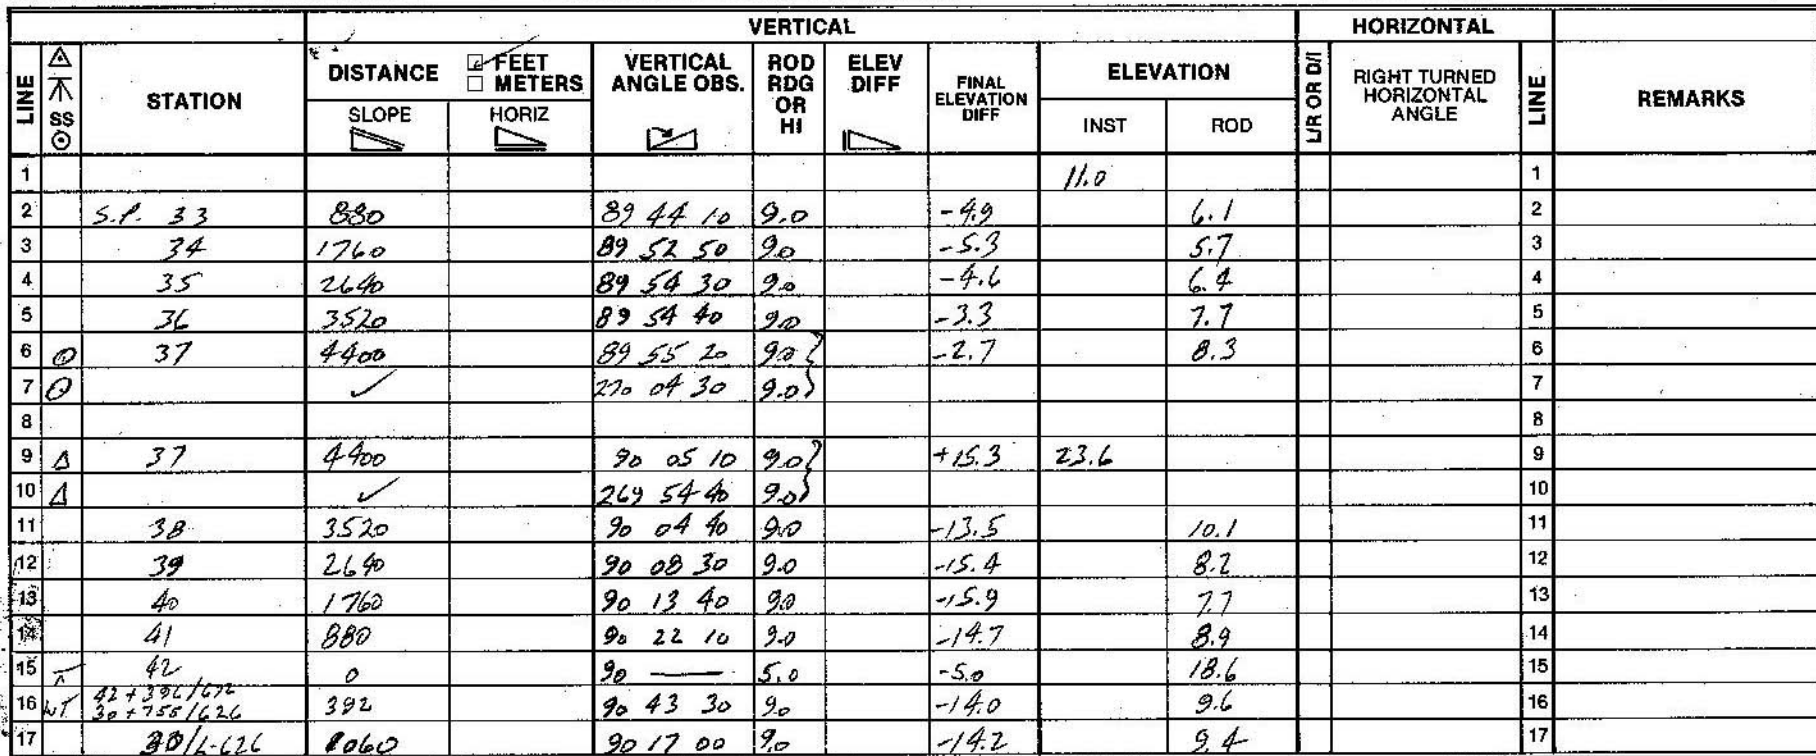 VERTICAL HORIZONTAL
LINE SS STATION DISTANCE FEET METERS VERTICAL ANGLE OBS. ROD RDG OR HI ELEV DIFF FINAL ELEVATION DIFF ELEVATION L/R OR D/I RIGHT TURNED HORIZONTAL ANGLE LINE REMARKS
SLOPE HORIZ INST ROD
1 11.0 1
2 S.P. 33 880 89 44 10 9.0 -4.9 6.1 2
3 34 1760 89 52 50 9.0 -5.3 5.7 3
4 35 2640 89 54 30 9.0 -4.6 6.4 4
5 36 3520 89 54 40 9.0 -3.3 7.7 5
6 37 4400 89 55 20 9.0 -2.7 8.3 6
7 ✓ 270 04 30 9.0 7
8 8
9 Δ 37 4400 90 05 10 9.0 +15.3 23.6 9
10 Δ ✓ 269 54 40 9.0 10
11 38 3520 90 04 40 9.0 -13.5 10.1 11
12 39 2640 90 08 30 9.0 -15.4 8.2 12
13 40 1760 90 13 40 9.0 -15.9 7.7 13
14 41 880 90 22 10 9.0 -14.7 8.9 14
15 42 0 90 — 5.0 -5.0 18.6 15
16 WT 42+396/672 392 90 43 30 9.0 -14.0 9.6 16
30+755/626
17 30/L-626 1060 90 17 00 9.0 -14.2 9.4 17